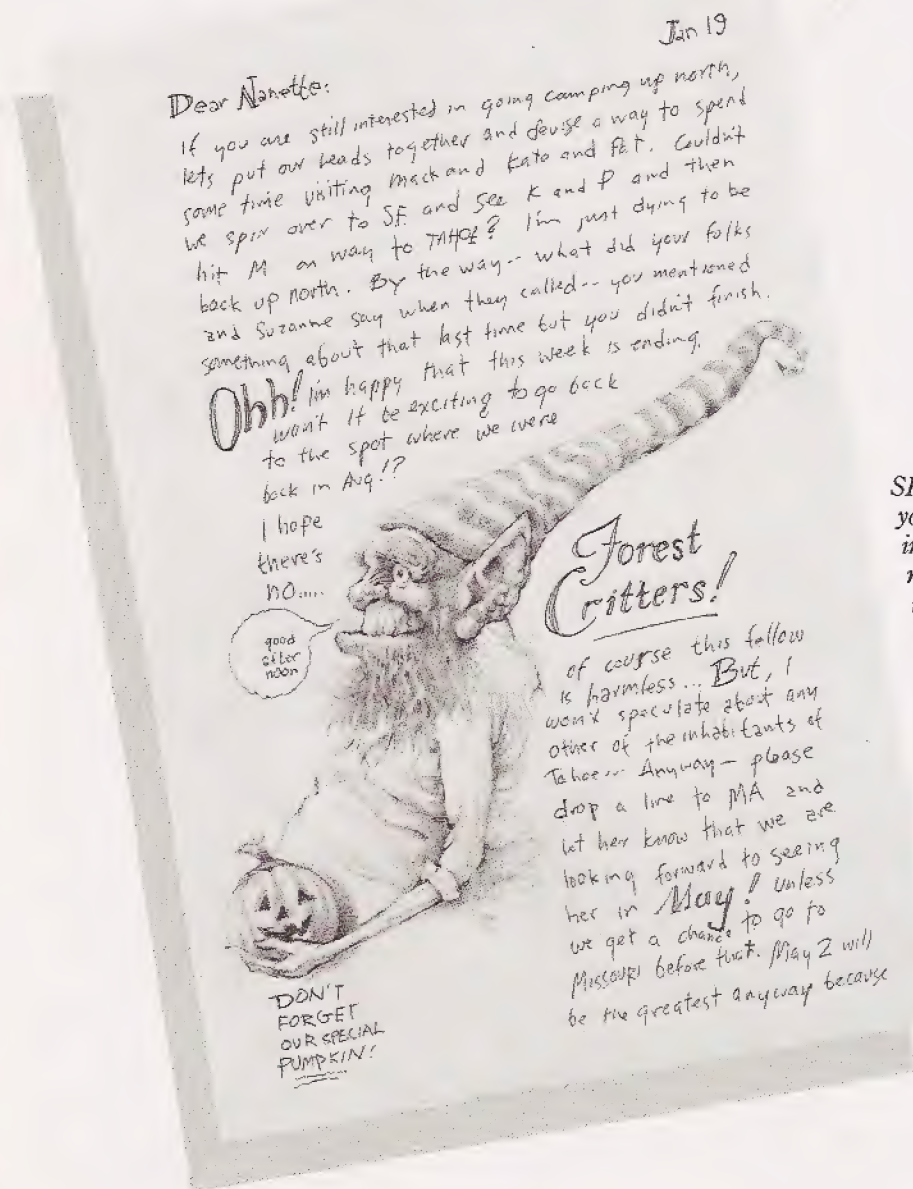 Jan 19
Dear Nanette:
If you are still interested in going camping up north,
lets put our heads together and devise a way to spend
some time visiting Mack and Kato and Pat. Couldn't
we spin over to SF and see K and P and then
hit M on way to TAHOE? I'm just dying to be
back up north. By the way-- what did your folks
and Suzanne say when they called-- you mentioned
something about that last time but you didn't finish.
Ohh! I'm happy that this week is ending.
won't it be exciting to go back
to the spot where we were
back in Aug!?
I hope
there's
no.....
good
after
noon
Forest
Critters!
of course this fellow
is harmless... But, I
won't speculate about any
other of the inhabitants of
Tahoe... Anyway— please
drop a line to MA and
let her know that we are
looking forward to seeing
her in May! unless
we get a chance to go to
Missouri before that. May 2 will
be the greatest anyway because
DON'T
FORGET
OUR SPECIAL
PUMPKIN!